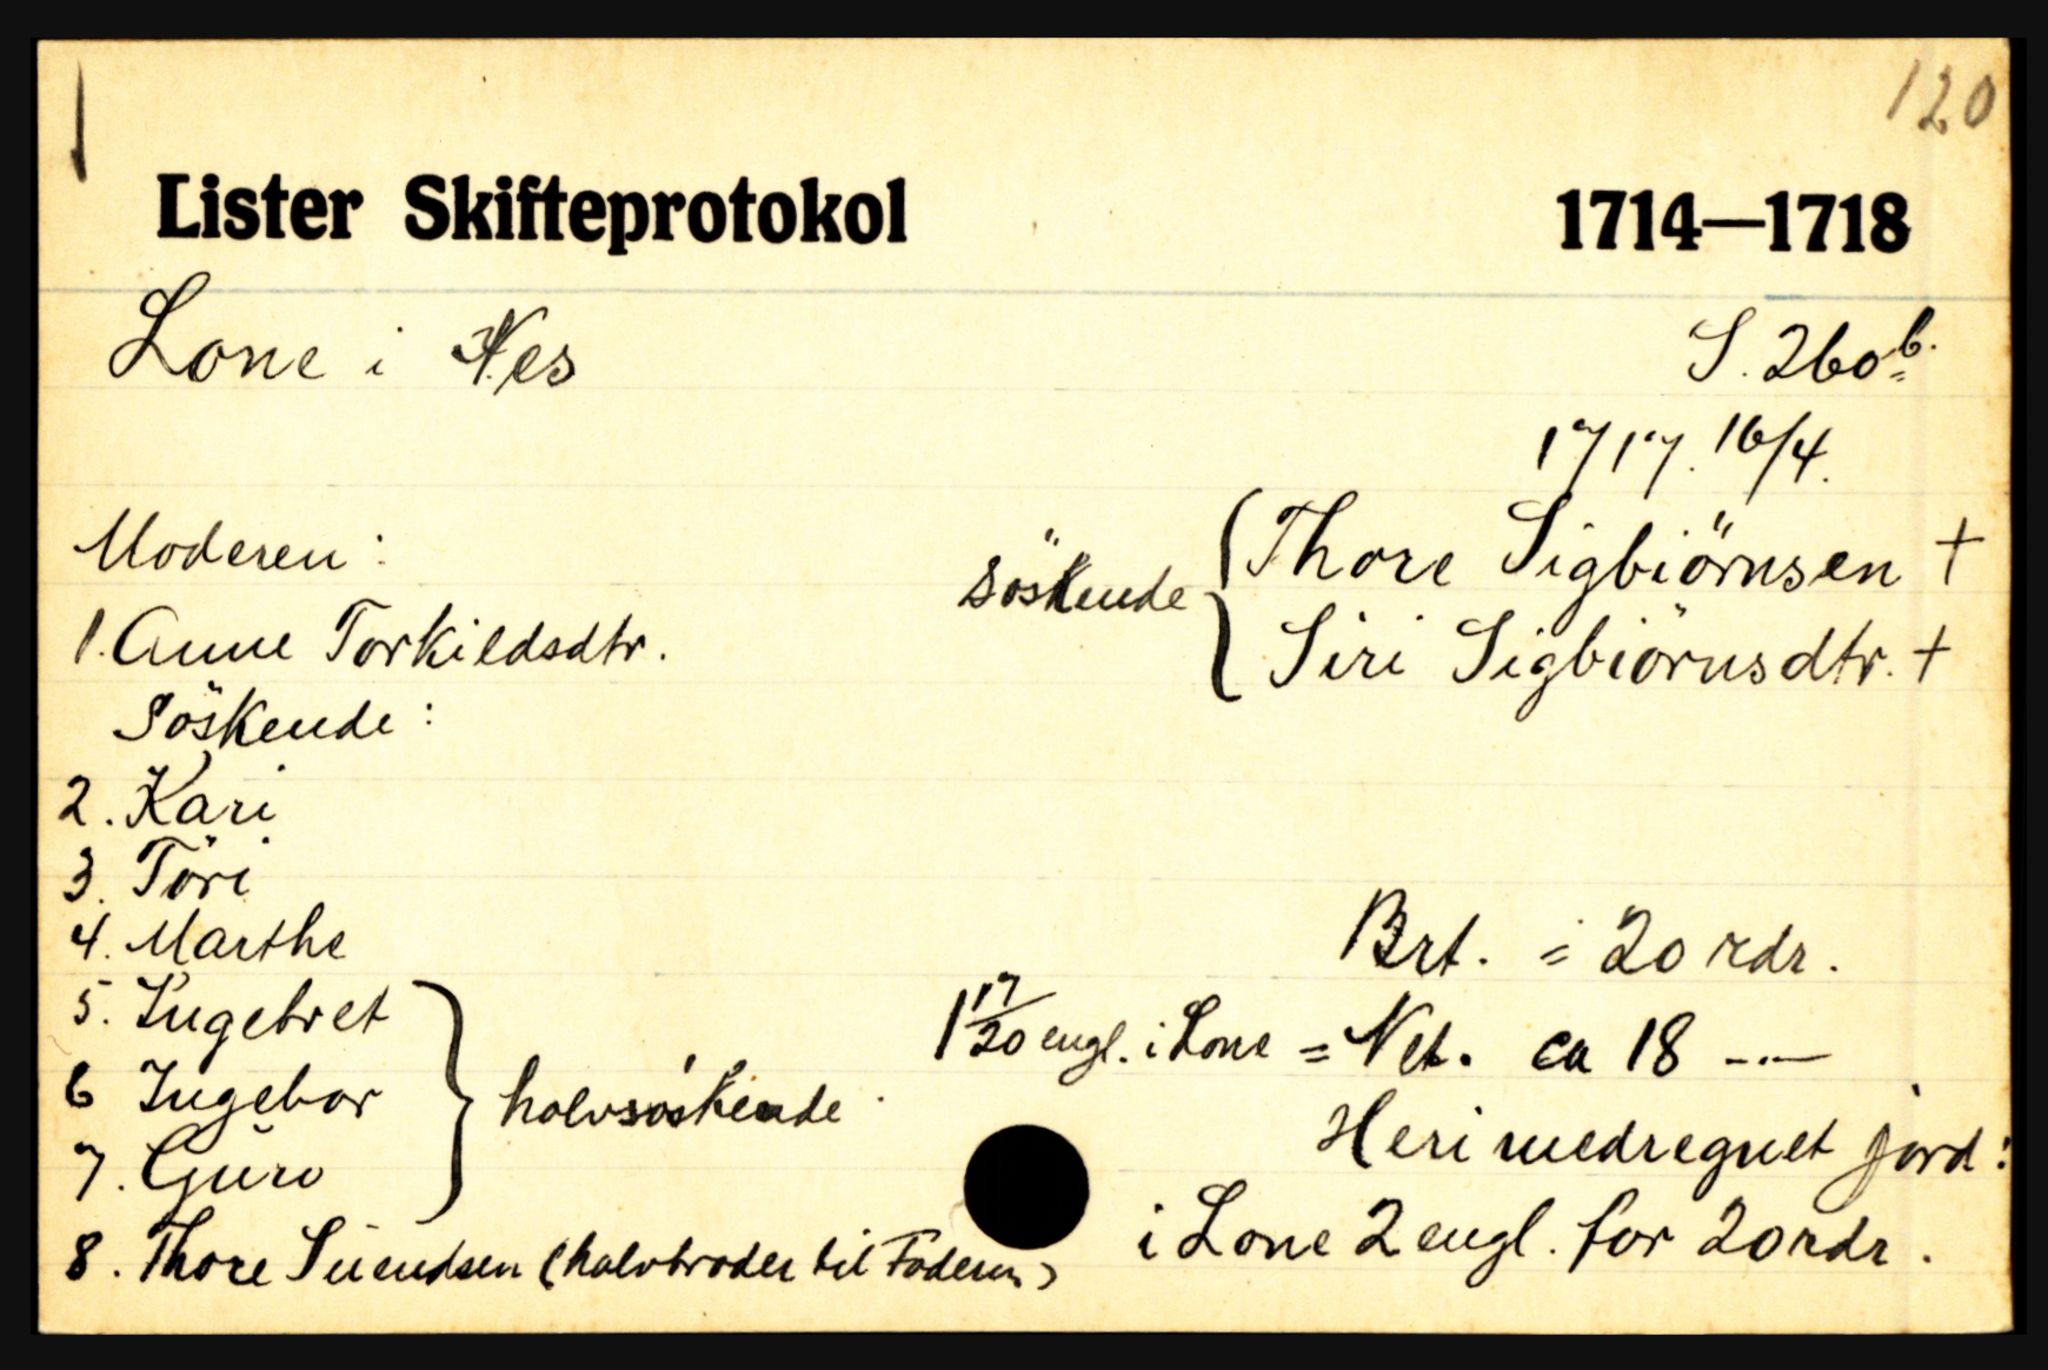 120
Lister Skifteprotokol 1714—1718
Lone i Nes S. 260b.
1717. 16/4.
Moderen:
söskende { Thore Sigbiörnsen +
Siri Sigbiörnsdtr. +
1. Anne Torkildsdtr.
Söskende:
2. Kari
3. Töri
4. Marthe
Brt. = 20 rdr.
5. Ingebret
1 17/20 engl. i Lone = Net. ca 18 -.-
6 Ingebor } halvsöskende
Heri medregnet jord:
7. Guro
i Lone 2 engl. for 20 rdr.
8. Thore Suendsen (halvbroder til Faderen)